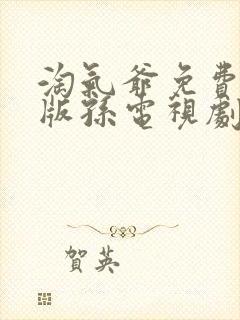 淘氣爺免費
版孫電視劇
賀英